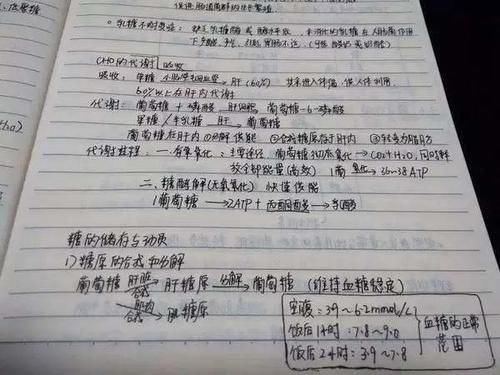 促进肠道菌群的生长繁殖
◦ 乳糖不耐受症：缺乏乳糖酶或酶水平低，未消化的乳糖在人肠菌作用
下产酸、产气，引起胃肠不适。
CHO的代谢 吸收
吸收：单糖 小肠 肝(60%) 共来进入体循，供人体利用
60%以上在肝内代谢
代谢：葡萄糖 + 磷酸 肝细胞 葡萄糖-6-磷酸
单糖/半乳糖 肝→葡萄糖
葡萄糖在肝内①分解供能 ②合成糖原存于肝内 ③转变为脂肪
代谢过程：一.有氧氧化：主要途径 葡萄糖彻底氧化→CO₂+H₂O，同时释
放全部能量(高效) 1葡 氧化→36~38ATP
二、糖酵解(无氧氧化) 快速供能
1葡萄糖 → 2ATP + 丙酮酸 → 乳酸
糖的储存与动员
1)糖原的合成和分解
葡萄糖 肝脏 合成→ 肝糖原 分解→ 葡萄糖 (维持血糖稳定)
肌肉 合成→ 肌糖原
空腹：3.9~6.2mmol/L
饭后1小时：7.8~9.0
饭后2小时：3.9~7.8
血糖的正常
范围